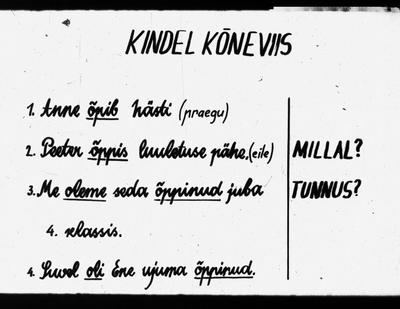 KINDEL KÕNEVIIS
1. Anne õpib hästi (praegu)
2. Peeter õppis luuletuse pähe. (eile)
MILLAL?
3. Me oleme seda õppinud juba
TUNNUS?
4. klassis.
4. Suvel oli Ene ujuma õppinud.